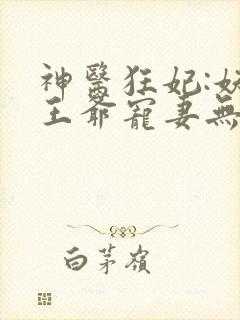 神醫狂妃:
王爺寵妻無
白茅嶺